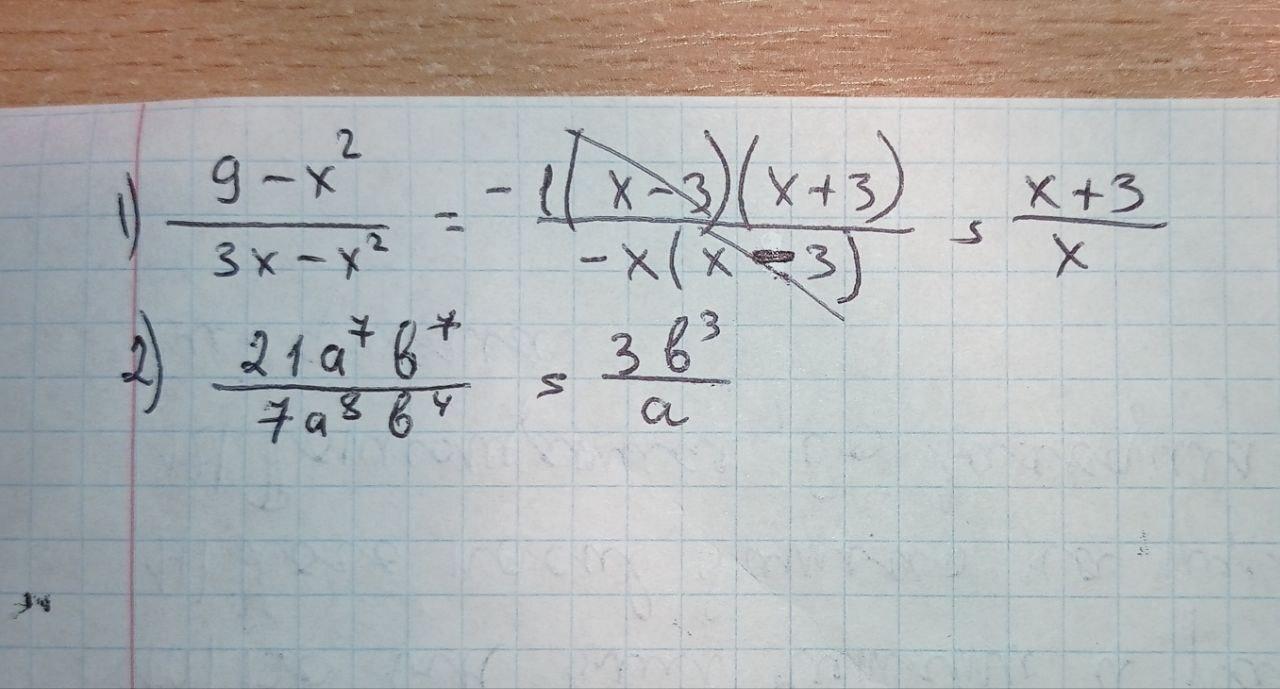 1) (9 - x²)/(3x - x²) = (-1(x - 3)(x + 3))/(-x(x - 3)) = (x + 3)/x
2) (21a⁷в⁷)/(7a⁸в⁴) = (3в³)/a